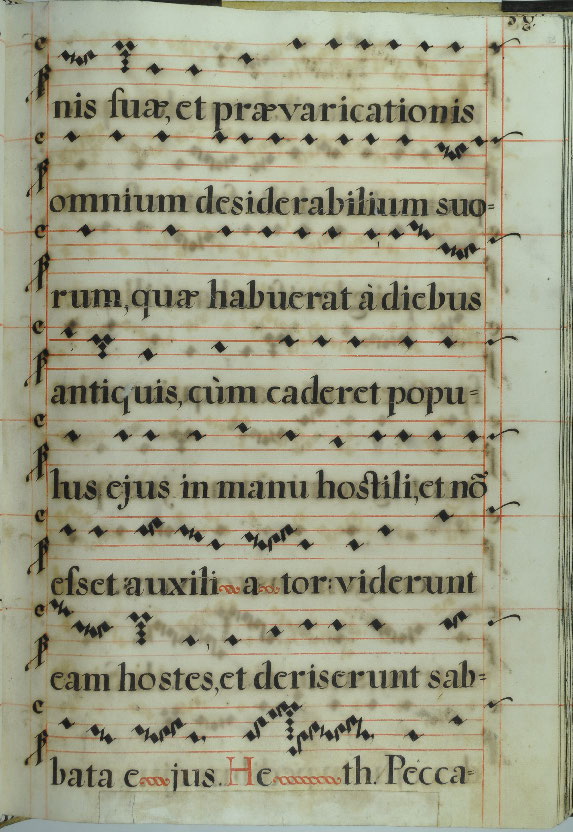 nis suæ, et prævaricationis
omnium desiderabilium suo=
rum, quæ habuerat à diebus
antiquis, cùm caderet popu=
lus ejus in manu hostili, et nõ
esset auxilia a tor: viderunt
eam hostes, et deriserunt sab=
bata e jus. He th. Pecca=